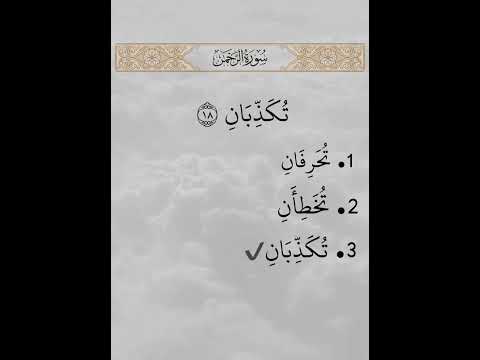 سُورَةُ الرَّحْمَٰن
تُكَذِّبَانِ ١٨
1. تُحَرِفَانِ
2. تُخَطِأَنِ
3. تُكَذِّبَانِ ✔